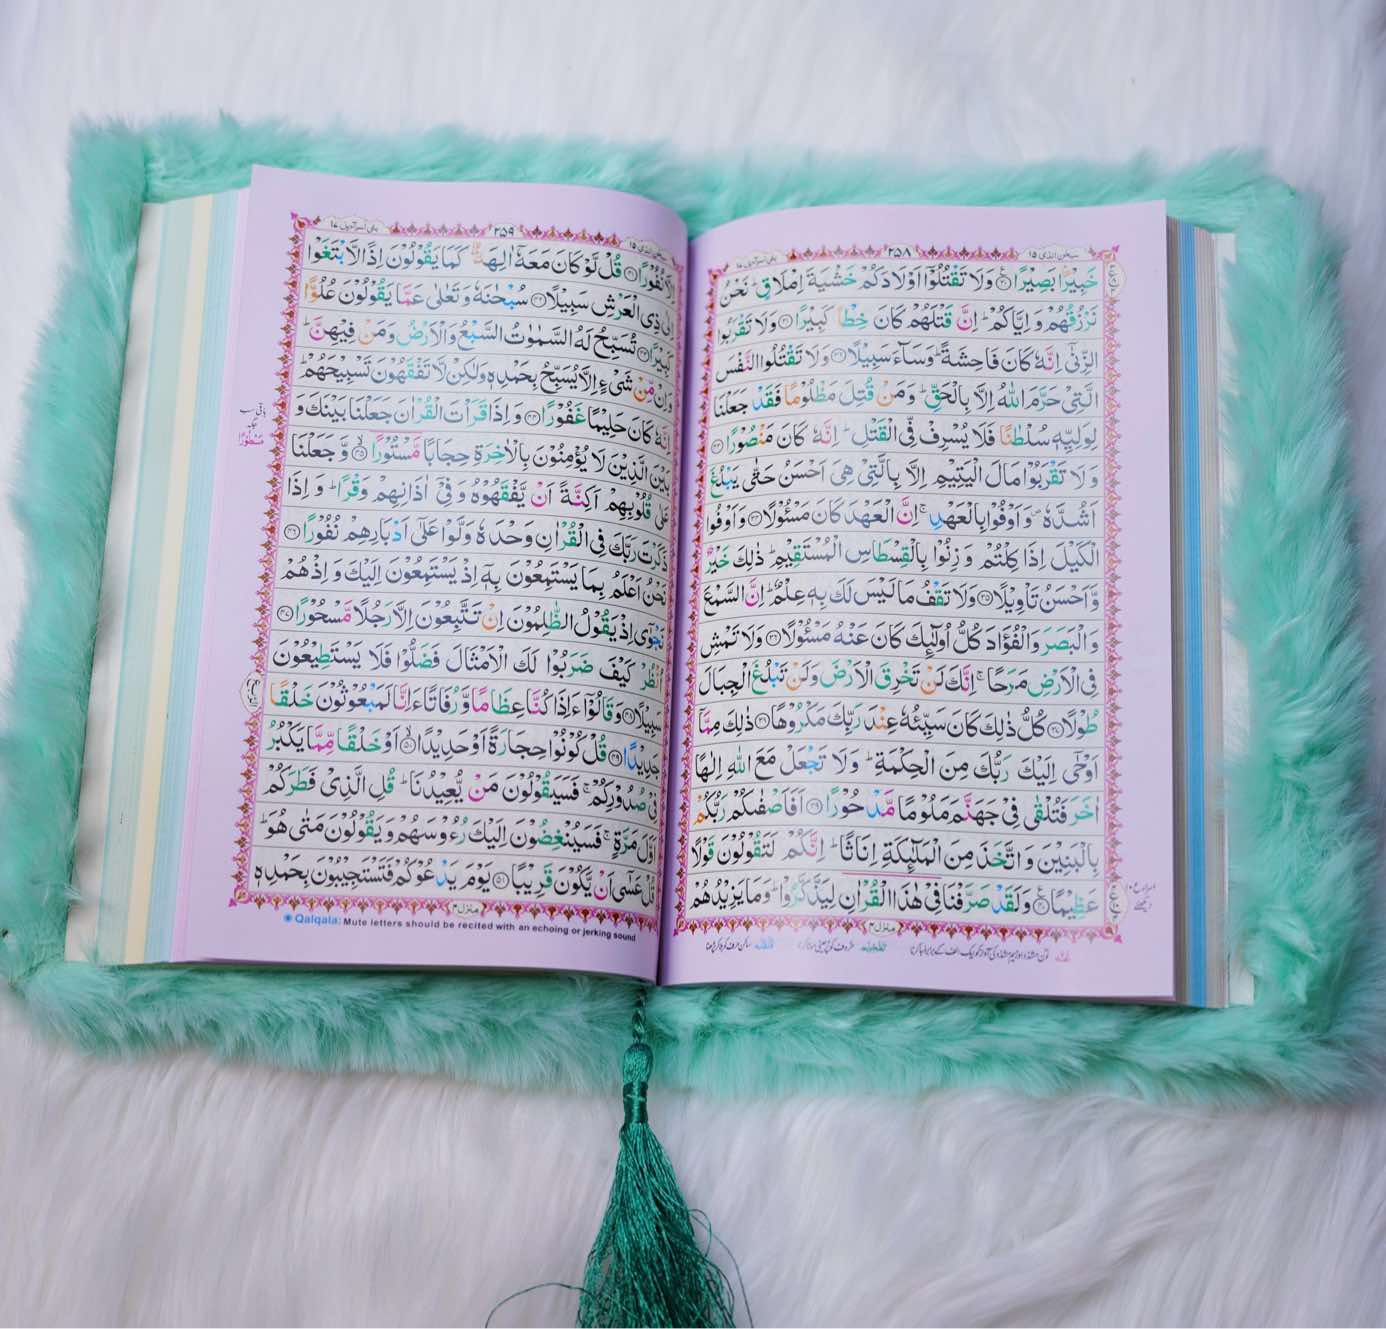 سبحٰن الذی ۱۵ ۳۵۸ بنی اسرآءیل ۱۷
خَبِيْرًۢا بَصِيْرًا ﴿۳۰﴾ وَلَا تَقْتُلُوْۤا اَوْلَادَكُمْ خَشْيَةَ اِمْلَاقٍ ؕ نَحْنُ
نَرْزُقُهُمْ وَ اِيَّاكُمْ ؕ اِنَّ قَتْلَهُمْ كَانَ خِطْاً كَبِيْرًا ﴿۳۱﴾ وَلَا تَقْرَبُوا
الزِّنٰۤى اِنَّهٗ كَانَ فَاحِشَةً ؕ وَسَآءَ سَبِيْلًا ﴿۳۲﴾ وَلَا تَقْتُلُوا النَّفْسَ
الَّتِيْ حَرَّمَ اللّٰهُ اِلَّا بِالْحَقِّ ؕ وَمَنْ قُتِلَ مَظْلُوْمًا فَقَدْ جَعَلْنَا
لِوَلِيِّهٖ سُلْطٰنًا فَلَا يُسْرِفْ فِّى الْقَتْلِ ؕ اِنَّهٗ كَانَ مَنْصُوْرًا ﴿۳۳﴾
وَلَا تَقْرَبُوْا مَالَ الْيَتِيْمِ اِلَّا بِالَّتِيْ هِىَ اَحْسَنُ حَتّٰى يَبْلُغَ
اَشُدَّهٗ ۪ وَاَوْفُوْا بِالْعَهْدِ ۚ اِنَّ الْعَهْدَ كَانَ مَسْئُوْلًا ﴿۳۴﴾ وَاَوْفُوا
الْكَيْلَ اِذَا كِلْتُمْ وَ زِنُوْا بِالْقِسْطَاسِ الْمُسْتَقِيْمِ ؕ ذٰلِكَ خَيْرٌ
وَّاَحْسَنُ تَاْوِيْلًا ﴿۳۵﴾ وَلَا تَقْفُ مَا لَيْسَ لَكَ بِهٖ عِلْمٌ ؕ اِنَّ السَّمْعَ
وَالْبَصَرَ وَالْفُؤَادَ كُلُّ اُولٰٓئِكَ كَانَ عَنْهُ مَسْئُوْلًا ﴿۳۶﴾ وَلَا تَمْشِ
فِى الْاَرْضِ مَرَحًا ۚ اِنَّكَ لَنْ تَخْرِقَ الْاَرْضَ وَلَنْ تَبْلُغَ الْجِبَالَ
طُوْلًا ﴿۳۷﴾ كُلُّ ذٰلِكَ كَانَ سَيِّئُهٗ عِنْدَ رَبِّكَ مَكْرُوْهًا ﴿۳۸﴾ ذٰلِكَ مِمَّاۤ
اَوْحٰۤى اِلَيْكَ رَبُّكَ مِنَ الْحِكْمَةِ ؕ وَلَا تَجْعَلْ مَعَ اللّٰهِ اِلٰهًا
اٰخَرَ فَتُلْقٰى فِيْ جَهَنَّمَ مَلُوْمًا مَّدْحُوْرًا ﴿۳۹﴾ اَفَاَصْفٰىكُمْ رَبُّكُمْ
بِالْبَنِيْنَ وَاتَّخَذَ مِنَ الْمَلٰٓئِكَةِ اِنَاثًا ؕ اِنَّكُمْ لَتَقُوْلُوْنَ قَوْلًا
عَظِيْمًا ﴿۴۰﴾ وَلَقَدْ صَرَّفْنَا فِيْ هٰذَا الْقُرْاٰنِ لِيَذَّكَّرُوْا ؕ وَمَا يَزِيْدُهُمْ
منزل ۴
سبحٰن الذی ۱۵ ۳۵۹ بنی اسرآءیل ۱۷
اِلَّا نُفُوْرًا ﴿۴۱﴾ قُلْ لَّوْ كَانَ مَعَهٗۤ اٰلِهَةٌ كَمَا يَقُوْلُوْنَ اِذًا لَّابْتَغَوْا
اِلٰى ذِى الْعَرْشِ سَبِيْلًا ﴿۴۲﴾ سُبْحٰنَهٗ وَتَعٰلٰى عَمَّا يَقُوْلُوْنَ عُلُوًّا
كَبِيْرًا ﴿۴۳﴾ تُسَبِّحُ لَهُ السَّمٰوٰتُ السَّبْعُ وَالْاَرْضُ وَمَنْ فِيْهِنَّ ؕ
وَاِنْ مِّنْ شَيْءٍ اِلَّا يُسَبِّحُ بِحَمْدِهٖ وَلٰكِنْ لَّا تَفْقَهُوْنَ تَسْبِيْحَهُمْ ؕ
اِنَّهٗ كَانَ حَلِيْمًا غَفُوْرًا ﴿۴۴﴾ وَ اِذَا قَرَاْتَ الْقُرْاٰنَ جَعَلْنَا بَيْنَكَ وَ
بَيْنَ الَّذِيْنَ لَا يُؤْمِنُوْنَ بِالْاٰخِرَةِ حِجَابًا مَّسْتُوْرًا ﴿۴۵﴾ وَّ جَعَلْنَا
عَلٰى قُلُوْبِهِمْ اَكِنَّةً اَنْ يَّفْقَهُوْهُ وَفِيْۤ اٰذَانِهِمْ وَقْرًا ؕ وَ اِذَا
ذَكَرْتَ رَبَّكَ فِى الْقُرْاٰنِ وَحْدَهٗ وَلَّوْا عَلٰۤى اَدْبَارِهِمْ نُفُوْرًا ﴿۴۶﴾
نَحْنُ اَعْلَمُ بِمَا يَسْتَمِعُوْنَ بِهٖۤ اِذْ يَسْتَمِعُوْنَ اِلَيْكَ وَ اِذْ هُمْ
نَجْوٰۤى اِذْ يَقُوْلُ الظّٰلِمُوْنَ اِنْ تَتَّبِعُوْنَ اِلَّا رَجُلًا مَّسْحُوْرًا ﴿۴۷﴾
اُنْظُرْ كَيْفَ ضَرَبُوْا لَكَ الْاَمْثَالَ فَضَلُّوْا فَلَا يَسْتَطِيْعُوْنَ
سَبِيْلًا ﴿۴۸﴾ وَقَالُوْۤا ءَاِذَا كُنَّا عِظَامًا وَّرُفَاتًا ءَاِنَّا لَمَبْعُوْثُوْنَ خَلْقًا
جَدِيْدًا ﴿۴۹﴾ قُلْ كُوْنُوْا حِجَارَةً اَوْ حَدِيْدًا ﴿۵۰﴾ اَوْ خَلْقًا مِّمَّا يَكْبُرُ
فِيْ صُدُوْرِكُمْ ۚ فَسَيَقُوْلُوْنَ مَنْ يُّعِيْدُنَا ؕ قُلِ الَّذِيْ فَطَرَكُمْ
اَوَّلَ مَرَّةٍ ۚ فَسَيُنْغِضُوْنَ اِلَيْكَ رُءُوْسَهُمْ وَ يَقُوْلُوْنَ مَتٰى هُوَ ؕ
قُلْ عَسٰۤى اَنْ يَّكُوْنَ قَرِيْبًا ﴿۵۱﴾ يَوْمَ يَدْعُوْكُمْ فَتَسْتَجِيْبُوْنَ بِحَمْدِهٖ
منزل ۴
Qalqala: Mute letters should be recited with an echoing or jerking sound